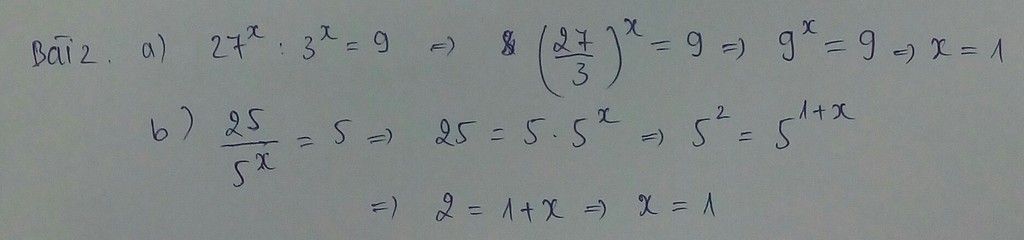 Bài 2. a) 27^x : 3^x = 9 => (27/3)^x = 9 => 9^x = 9 => x = 1
b) 25/5^x = 5 => 25 = 5 · 5^x => 5^2 = 5^(1+x)
=> 2 = 1+x => x = 1